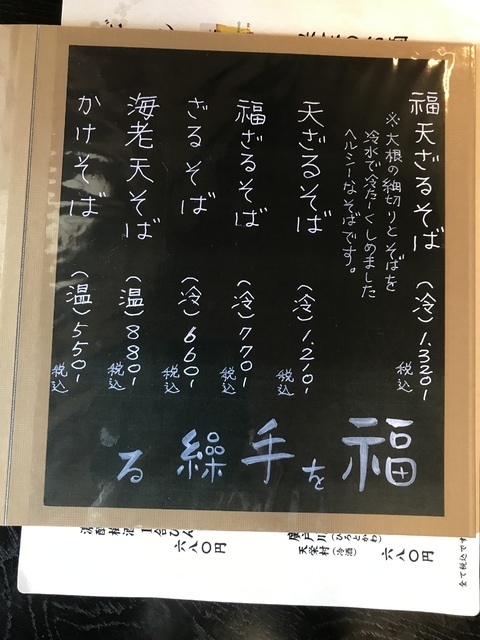 福天ざるそば (冷) 1.320-
税込
※大根の細切りとそばを
冷水で冷たーくしめました
ヘルシーなそばです。
天ざるそば (冷) 1.210-
税込
福ざるそば (冷) 770-
税込
ざるそば (冷) 660-
税込
海老天そば (温) 880-
税込
かけそば (温) 550-
税込
福を手繰る
廣戸川 (ひろとがわ)
天栄村 (冷酒) 六八〇円
六八〇円
全て税込です